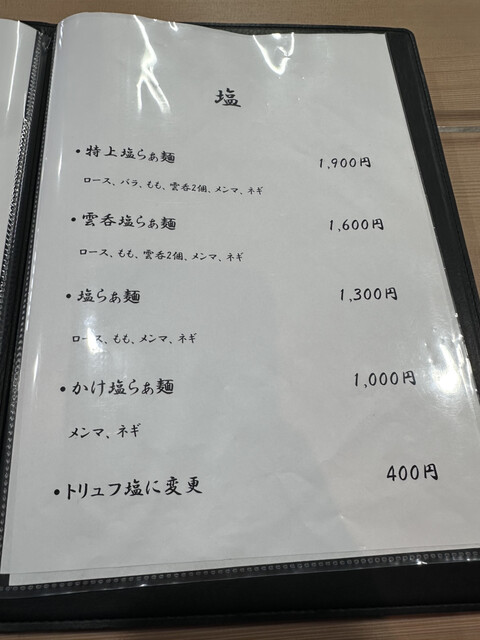 塩
・特上塩らぁ麺 1,900円
ロース、バラ、もも、雲呑2個、メンマ、ネギ
・雲呑塩らぁ麺 1,600円
ロース、もも、雲呑2個、メンマ、ネギ
・塩らぁ麺 1,300円
ロース、もも、メンマ、ネギ
・かけ塩らぁ麺 1,000円
メンマ、ネギ
・トリュフ塩に変更 400円